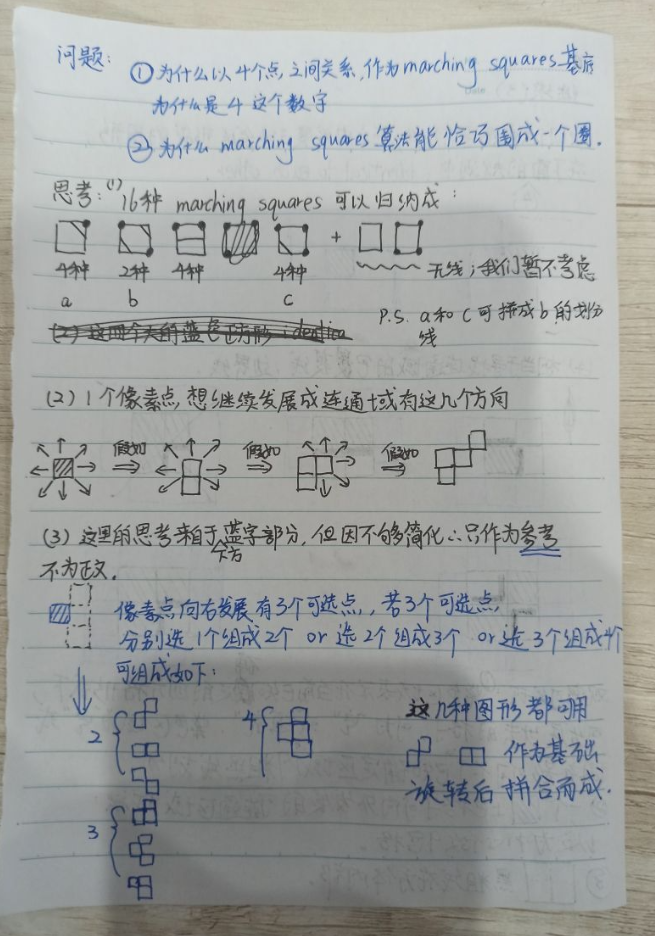 问题：①为什么以4个点之间关系，作为marching squares基底
为什么是4这个数字
②为什么marching squares算法能恰巧围成一个圈．
思考：(1)16种 marching squares 可以归纳成：
+
4种 2种 4种 4种 无线；我们暂不考虑
a b c
P.S. a和c可拼成b的划分
线
(2)1个像素点，想继续发展成连通域有这几个方向
假如 假如 假如
(3)这里的思考来自于下方蓝字部分，但因不够简化∴只作为参考
不为正文．
像素点向右发展有3个可选点，若3个可选点
分别选1个组成2个 or 选2个组成3个 or 选3个组成4个
可组成如下：
2
3
4
这几种图形都可用
作为基础
旋转后拼合而成．